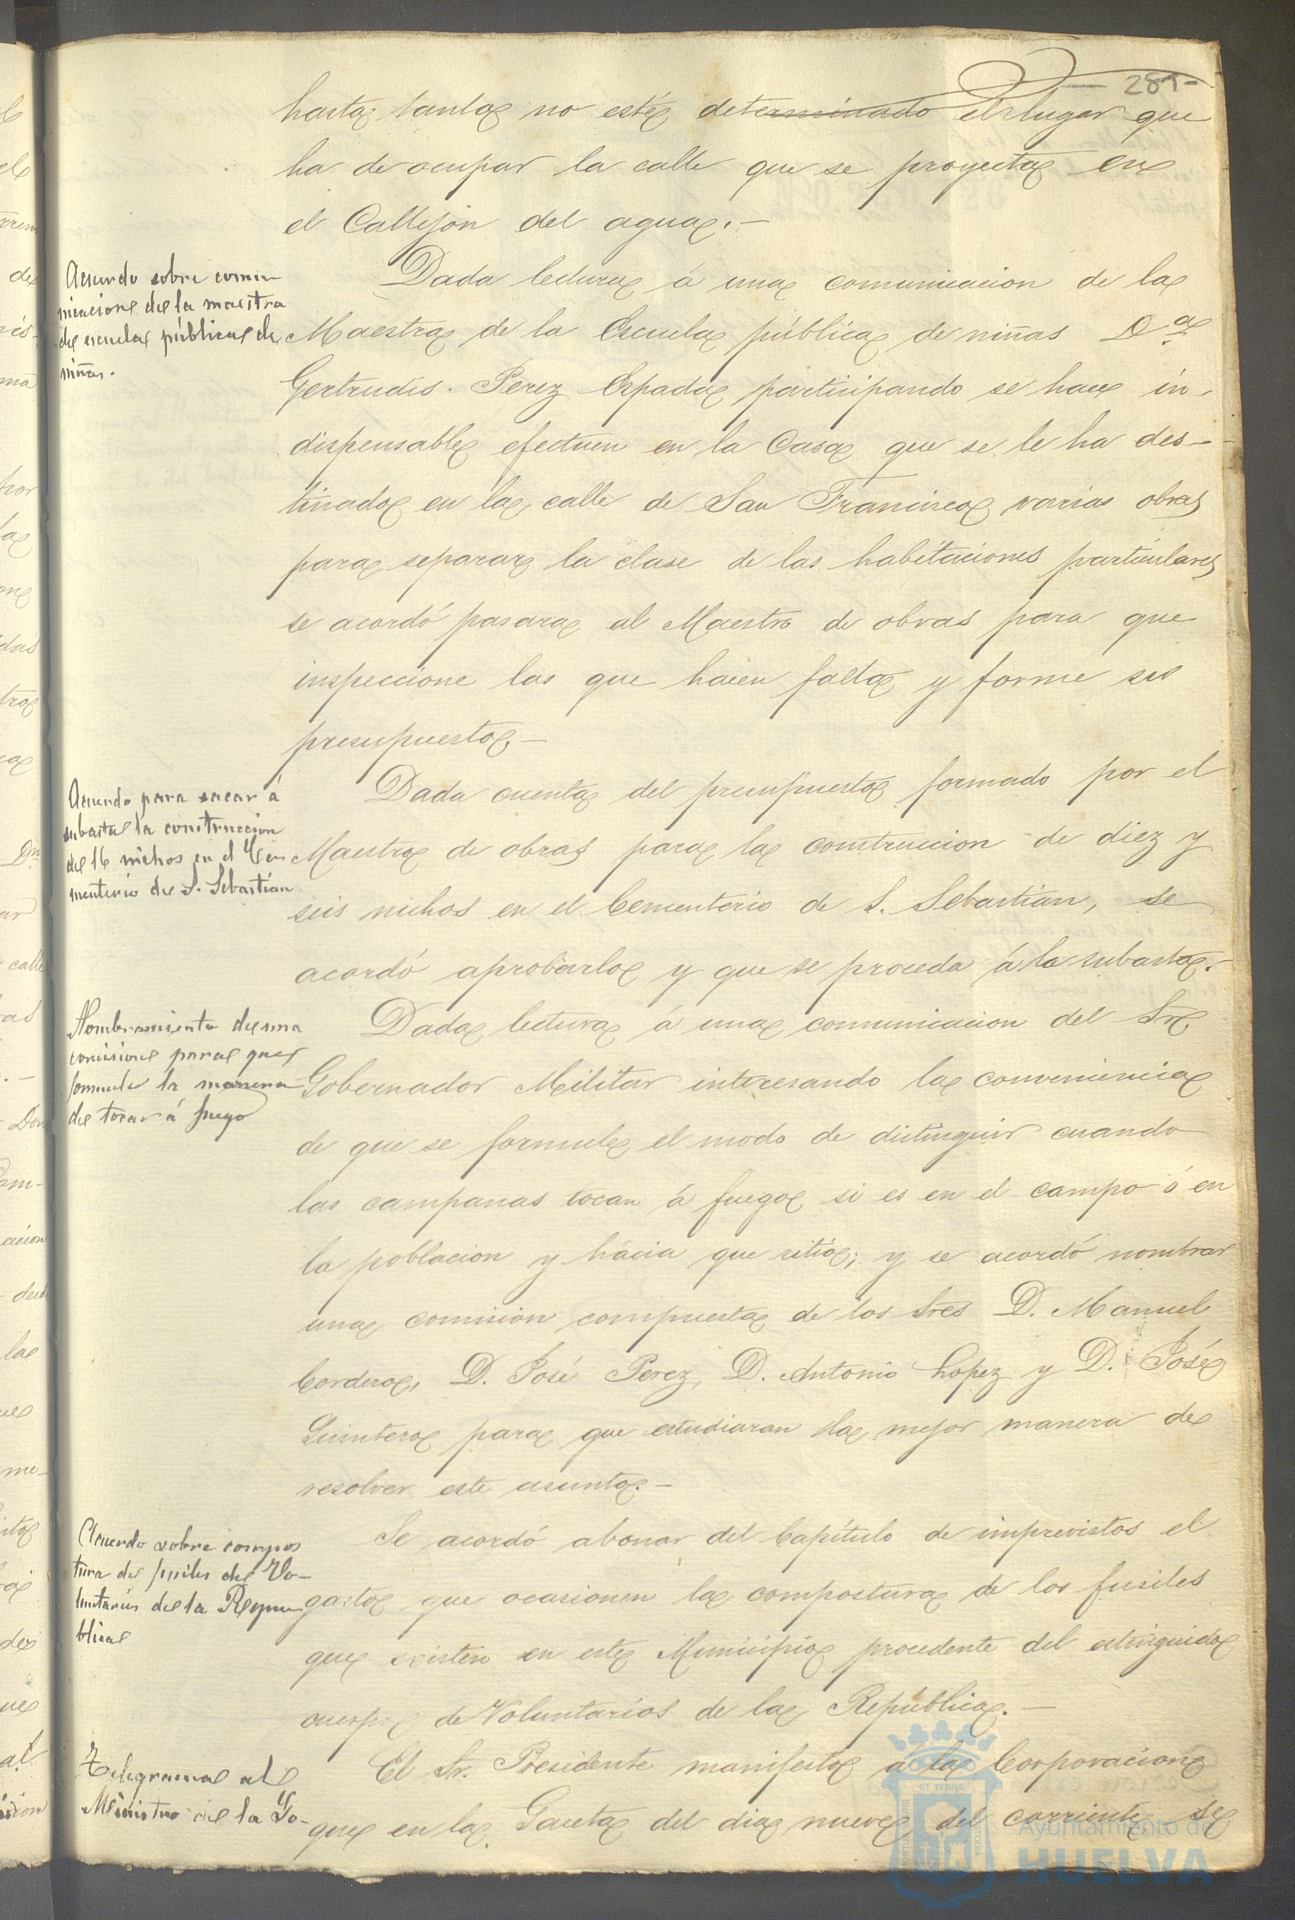 289
hasta tanto no esté determinado el lugar que
ha de ocupar la calle que se proyecta en
el Callejón del agua.—
Acuerdo sobre comu-
nicacion de la maestra
de escuela pública de
niñas.
Dada lectura á una comunicacion de la
Maestra de la Escuela pública de niñas Dª
Gertrudis Perez Espada participando se hace in-
dispensable efectuen en la Casa que se le ha des-
tinado en la calle de San Francisco varias obras
para separar la clase de las habitaciones particulares
se acordó pasara al Maestro de obras para que
inspeccione las que hacen falta y forme su
presupuesto.—
Acuerdo para sacar á
subasta la construccion
de 16 nichos en el Ce-
menterio de S. Sebastian
Dada cuenta del presupuesto formado por el
Maestro de obras para la construccion de diez y
seis nichos en el Cementerio de S. Sebastián, se
acordó aprobarlo y que se proceda á la subasta.—
Nombramiento de una
comision para que
formule la manera
de tocar á fuego
Dada lectura á una comunicacion del Sr.
Gobernador Militar interesando la conveniencia
de que se formule el modo de distinguir cuando
las campanas tocan á fuego si es en el campo ó en
la poblacion y hácia que sitio; y se acordó nombrar
una comision compuesta de los Sres D. Manuel
Cordero, D. José Perez, D. Antonio Lopez y D. José
Quintero para que estudiaran la mejor manera de
resolver este asunto.—
Acuerdo sobre compos
tura de fusiles de Vo-
luntarios de la Repu-
blica
Se acordó abonar del Capítulo de imprevistos el
gasto que ocasionen la compostura de los fusiles
que existen en este Municipio procedente del estinguido
cuerpo de Voluntarios de la República.—
Telegrama al
Ministro de la Go-
El Sr. Presidente manifestó á la Corporacion
que en la Gaceta del dia nueve del corriente se
Ayuntamiento de
HUELVA